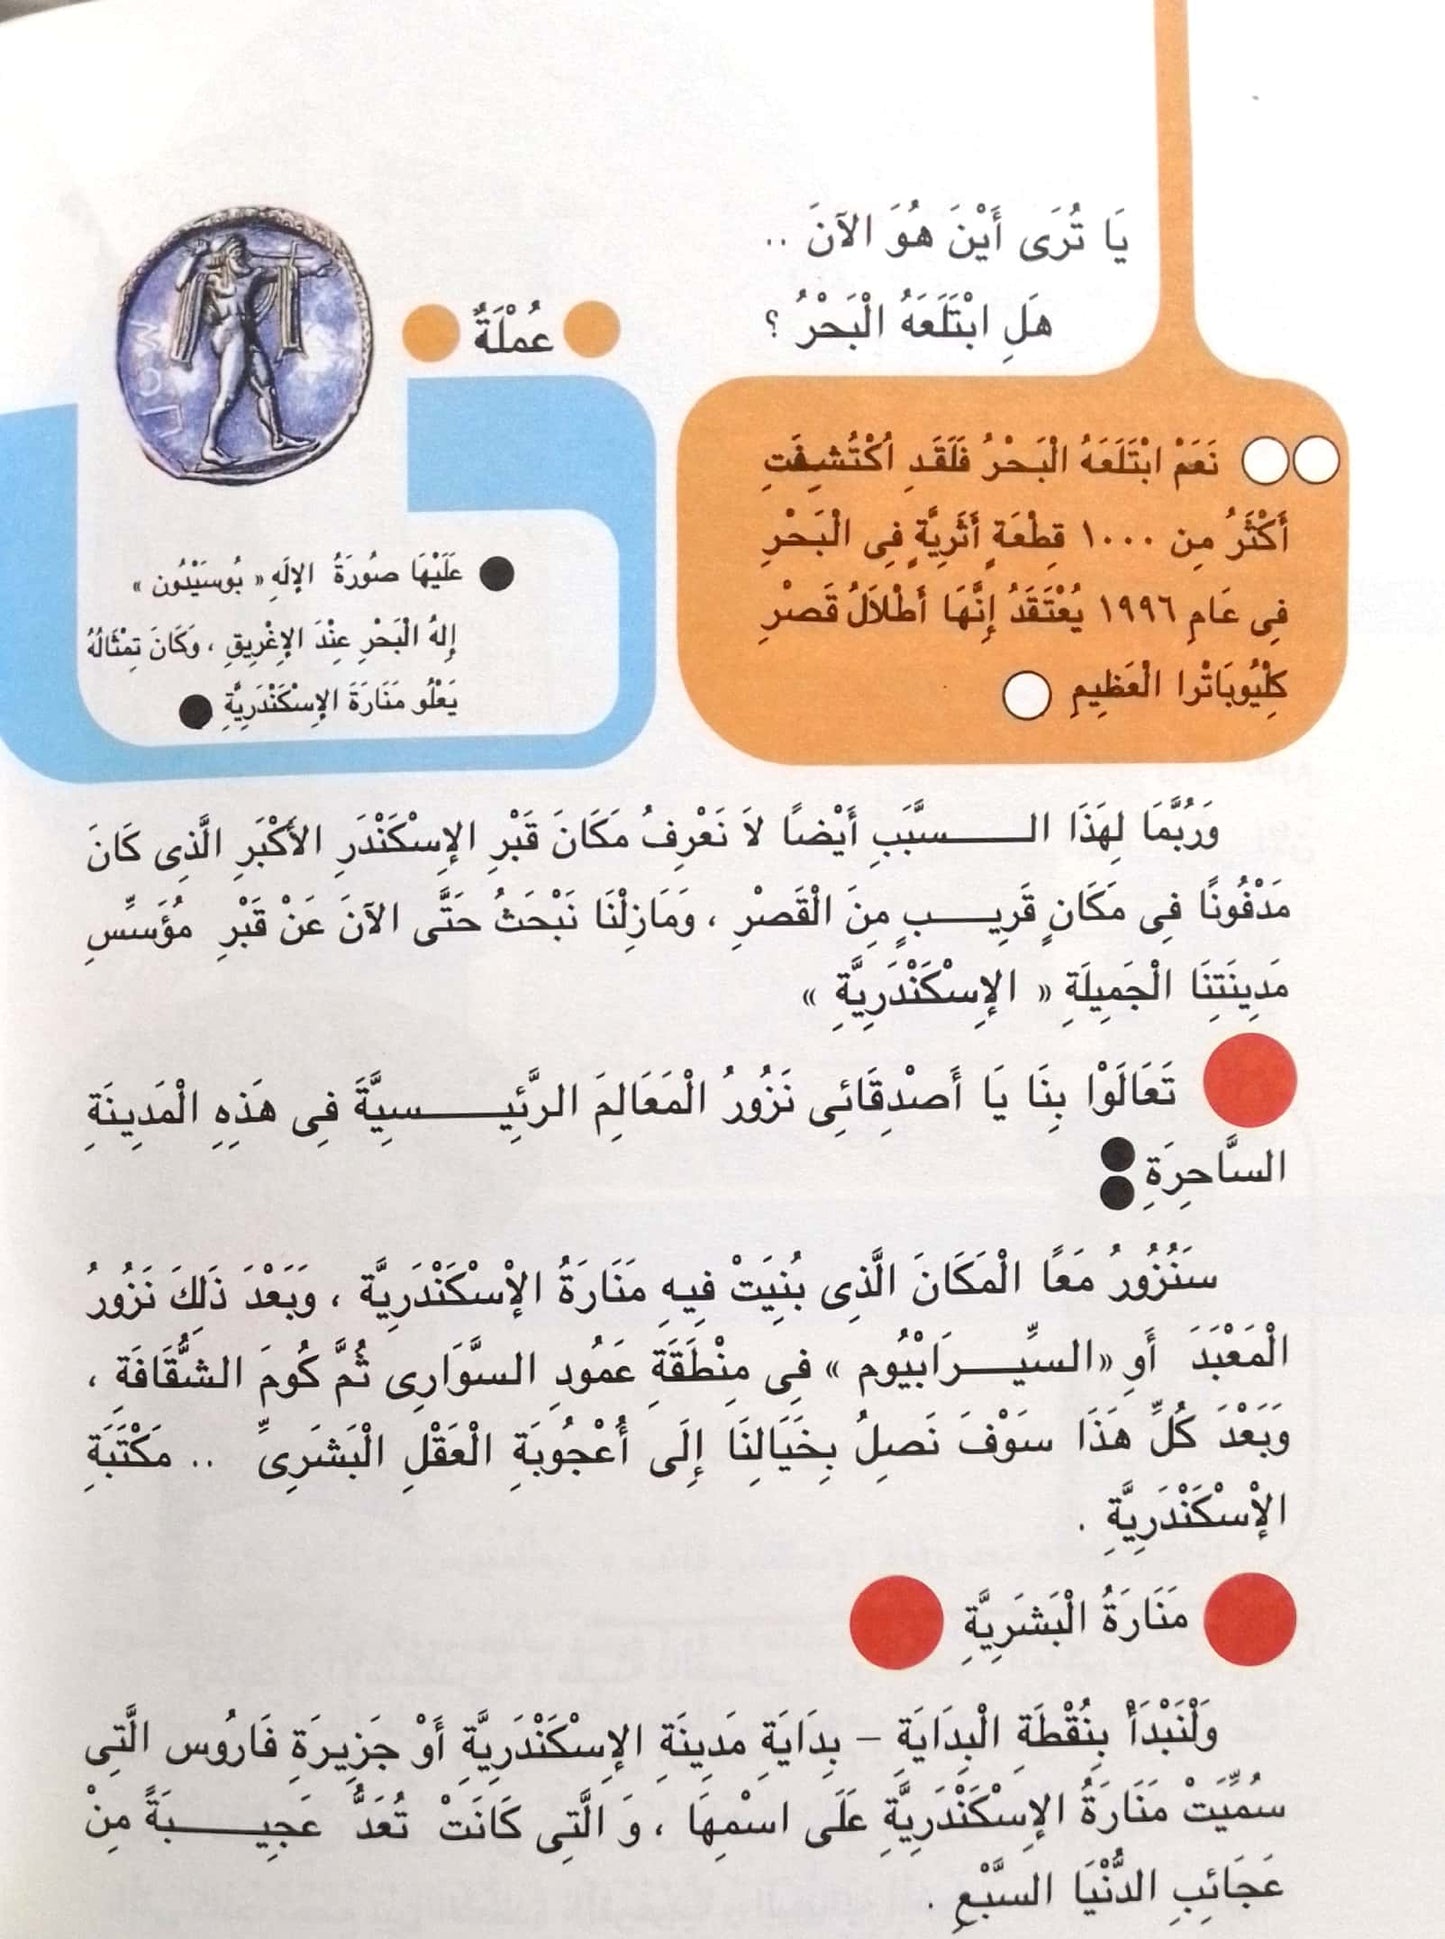 يَا تُرَى أَيْنَ هُوَ الآنَ ..
هَلِ ابْتَلَعَهُ الْبَحْرُ ؟
نَعَمْ ابْتَلَعَهُ الْبَحْرُ فَلَقَدِ اُكْتُشِفَتِ
أَكْثَرُ مِن ١٠٠٠ قِطْعَةٍ أَثَرِيَّةٍ فِى الْبَحْرِ
فِى عَامِ ١٩٩٦ يُعْتَقَدُ إِنَّهَا أَطْلاَلُ قَصْرِ
كِلْيُوبَاتْرا الْعَظِيمِ
عُمْلَةٌ
عَلَيْهَا صُورَةُ الإلَهِ « بُوسَيْدُون »
إِلهُ الْبَحْرِ عِنْدَ الإغْرِيقِ ، وَكَانَ تِمْثَالُهُ
يَعْلُو مَنَارَةَ الإسْكَنْدَرِيَّةِ
وَرُبَّمَا لِهَذَا السَّبَبِ أَيْضًا لاَ نَعْرِفُ مَكَانَ قَبْرِ الإسْكَنْدَرِ الأَكْبَرِ الَّذِى كَانَ
مَدْفُونًا فِى مَكَانٍ قَرِيبٍ مِنَ الْقَصْرِ ، وَمَازِلْنَا نَبْحَثُ حَتَّى الآنَ عَنْ قَبْرِ مُؤَسِّسِ
مَدِينَتِنَا الْجَمِيلَةِ « الإسْكَنْدَرِيَّةِ »
تَعَالَوْا بِنَا يَا أَصْدِقَائِى نَزُورُ الْمَعَالِمَ الرَّئِيسِيَّةَ فِى هَذِهِ الْمَدِينَةِ
السَّاحِرَةِ :
سَنُزُورُ مَعًا الْمَكَانَ الَّذِى بُنِيَتْ فِيهِ مَنَارَةُ الإْسْكَنْدَرِيَّة ، وَبَعْدَ ذَلِكَ نَزُورُ
الْمَعْبَدَ أَوِ «السِّيرَابْيُوم » فِى مِنْطَقَةِ عَمُودِ السَّوَارِى ثُمَّ كُومَ الشُّقَافَةِ ،
وَبَعْدَ كُلِّ هَذَا سَوْفَ نَصِلُ بِخَيَالِنَا إِلَى أُعْجُوبَةِ الْعَقْلِ الْبَشَرِىِّ .. مَكْتَبَةِ
الإْسْكَنْدَرِيَّةِ .
مَنَارَةُ الْبَشَرِيَّةِ
وَلْنَبْدَأْ بِنُقْطَةِ الْبِدَايَةِ – بِدَايَةِ مَدِينَةِ الإسْكَنْدَرِيَّةِ أَوْ جَزِيرَةِ فَارُوس الَّتِى
سُمِّيَتْ مَنَارَةُ الإسْكَنْدَرِيَّةِ عَلَى اسْمِهَا ، وَ الَّتِى كَانَتْ تُعَدُّ عَجِيبَةً مِنْ
عَجَائِبِ الدُّنْيَا السَّبْعِ .